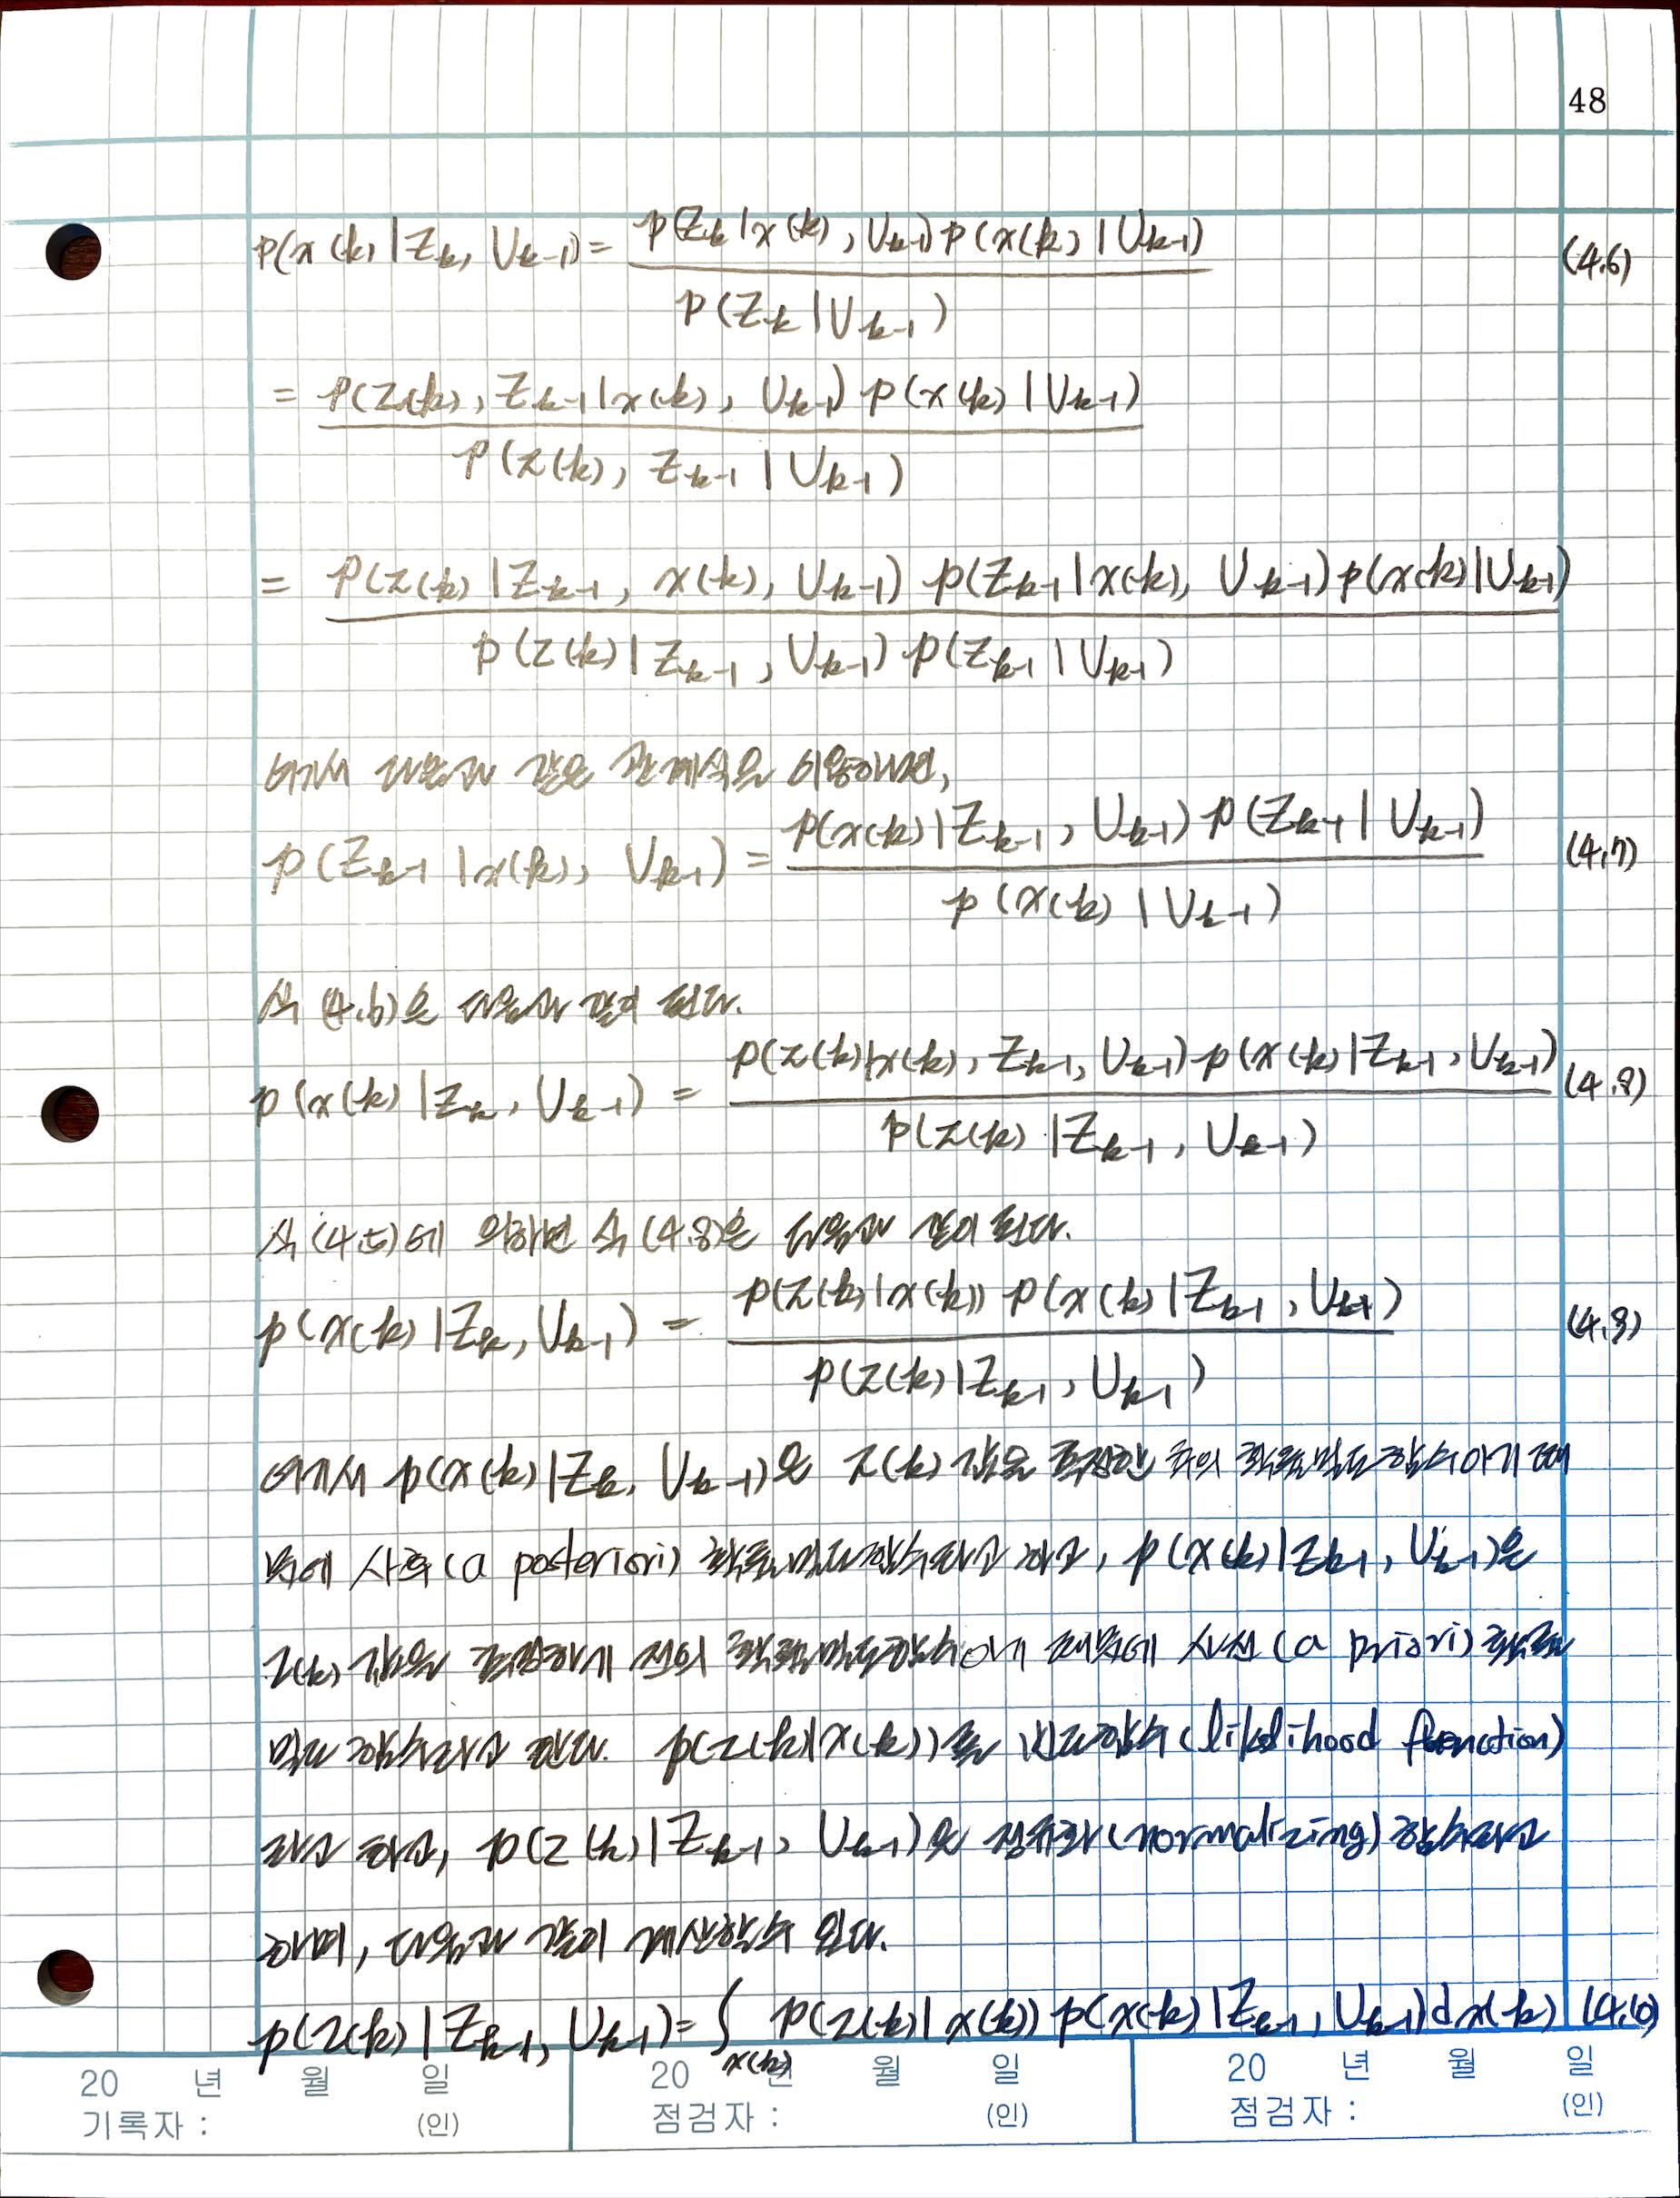 48
p(x(k) | Z_k, U_{k-1}) = p(Z_k | x(k), U_{k-1}) p(x(k) | U_{k-1}) / p(Z_k | U_{k-1}) (4.6)
= p(z(k), Z_{k-1} | x(k), U_{k-1}) p(x(k) | U_{k-1}) / p(z(k), Z_{k-1} | U_{k-1})
= p(z(k) | Z_{k-1}, x(k), U_{k-1}) p(Z_{k-1} | x(k), U_{k-1}) p(x(k) | U_{k-1}) / p(z(k) | Z_{k-1}, U_{k-1}) p(Z_{k-1} | U_{k-1})
여기서 다음과 같은 관계식을 이용하면,
p(Z_{k-1} | x(k), U_{k-1}) = p(x(k) | Z_{k-1}, U_{k-1}) p(Z_{k-1} | U_{k-1}) / p(x(k) | U_{k-1}) (4.7)
식 (4.6)은 다음과 같이 된다.
p(x(k) | Z_k, U_{k-1}) = p(z(k) | x(k), Z_{k-1}, U_{k-1}) p(x(k) | Z_{k-1}, U_{k-1}) / p(z(k) | Z_{k-1}, U_{k-1}) (4.8)
식 (4.5)에 의하면 식 (4.8)은 다음과 같이 된다.
p(x(k) | Z_k, U_{k-1}) = p(z(k) | x(k)) p(x(k) | Z_{k-1}, U_{k-1}) / p(z(k) | Z_{k-1}, U_{k-1}) (4.9)
여기서 p(x(k) | Z_k, U_{k-1})은 z(k) 값을 측정한 후의 확률밀도함수이기 때
문에 사후 (a posteriori) 확률밀도함수라고 하고, p(x(k) | Z_{k-1}, U_{k-1})은
z(k) 값을 측정하기 전의 확률밀도함수이기 때문에 사전 (a priori) 확률
밀도 함수라고 한다. p(z(k) | x(k))를 빈도함수 (likelihood function)
라고 하고, p(z(k) | Z_{k-1}, U_{k-1})은 정규화 (normalizing) 함수라고
하며, 다음과 같이 계산할 수 있다.
p(z(k) | Z_{k-1}, U_{k-1}) = ∫_{x(k)} p(z(k) | x(k)) p(x(k) | Z_{k-1}, U_{k-1}) dx(k) (4.10)
20 년 월 일 20 년 월 일 20 년 월 일
기록자 : (인) 점검자 : (인) 점검자 : (인)